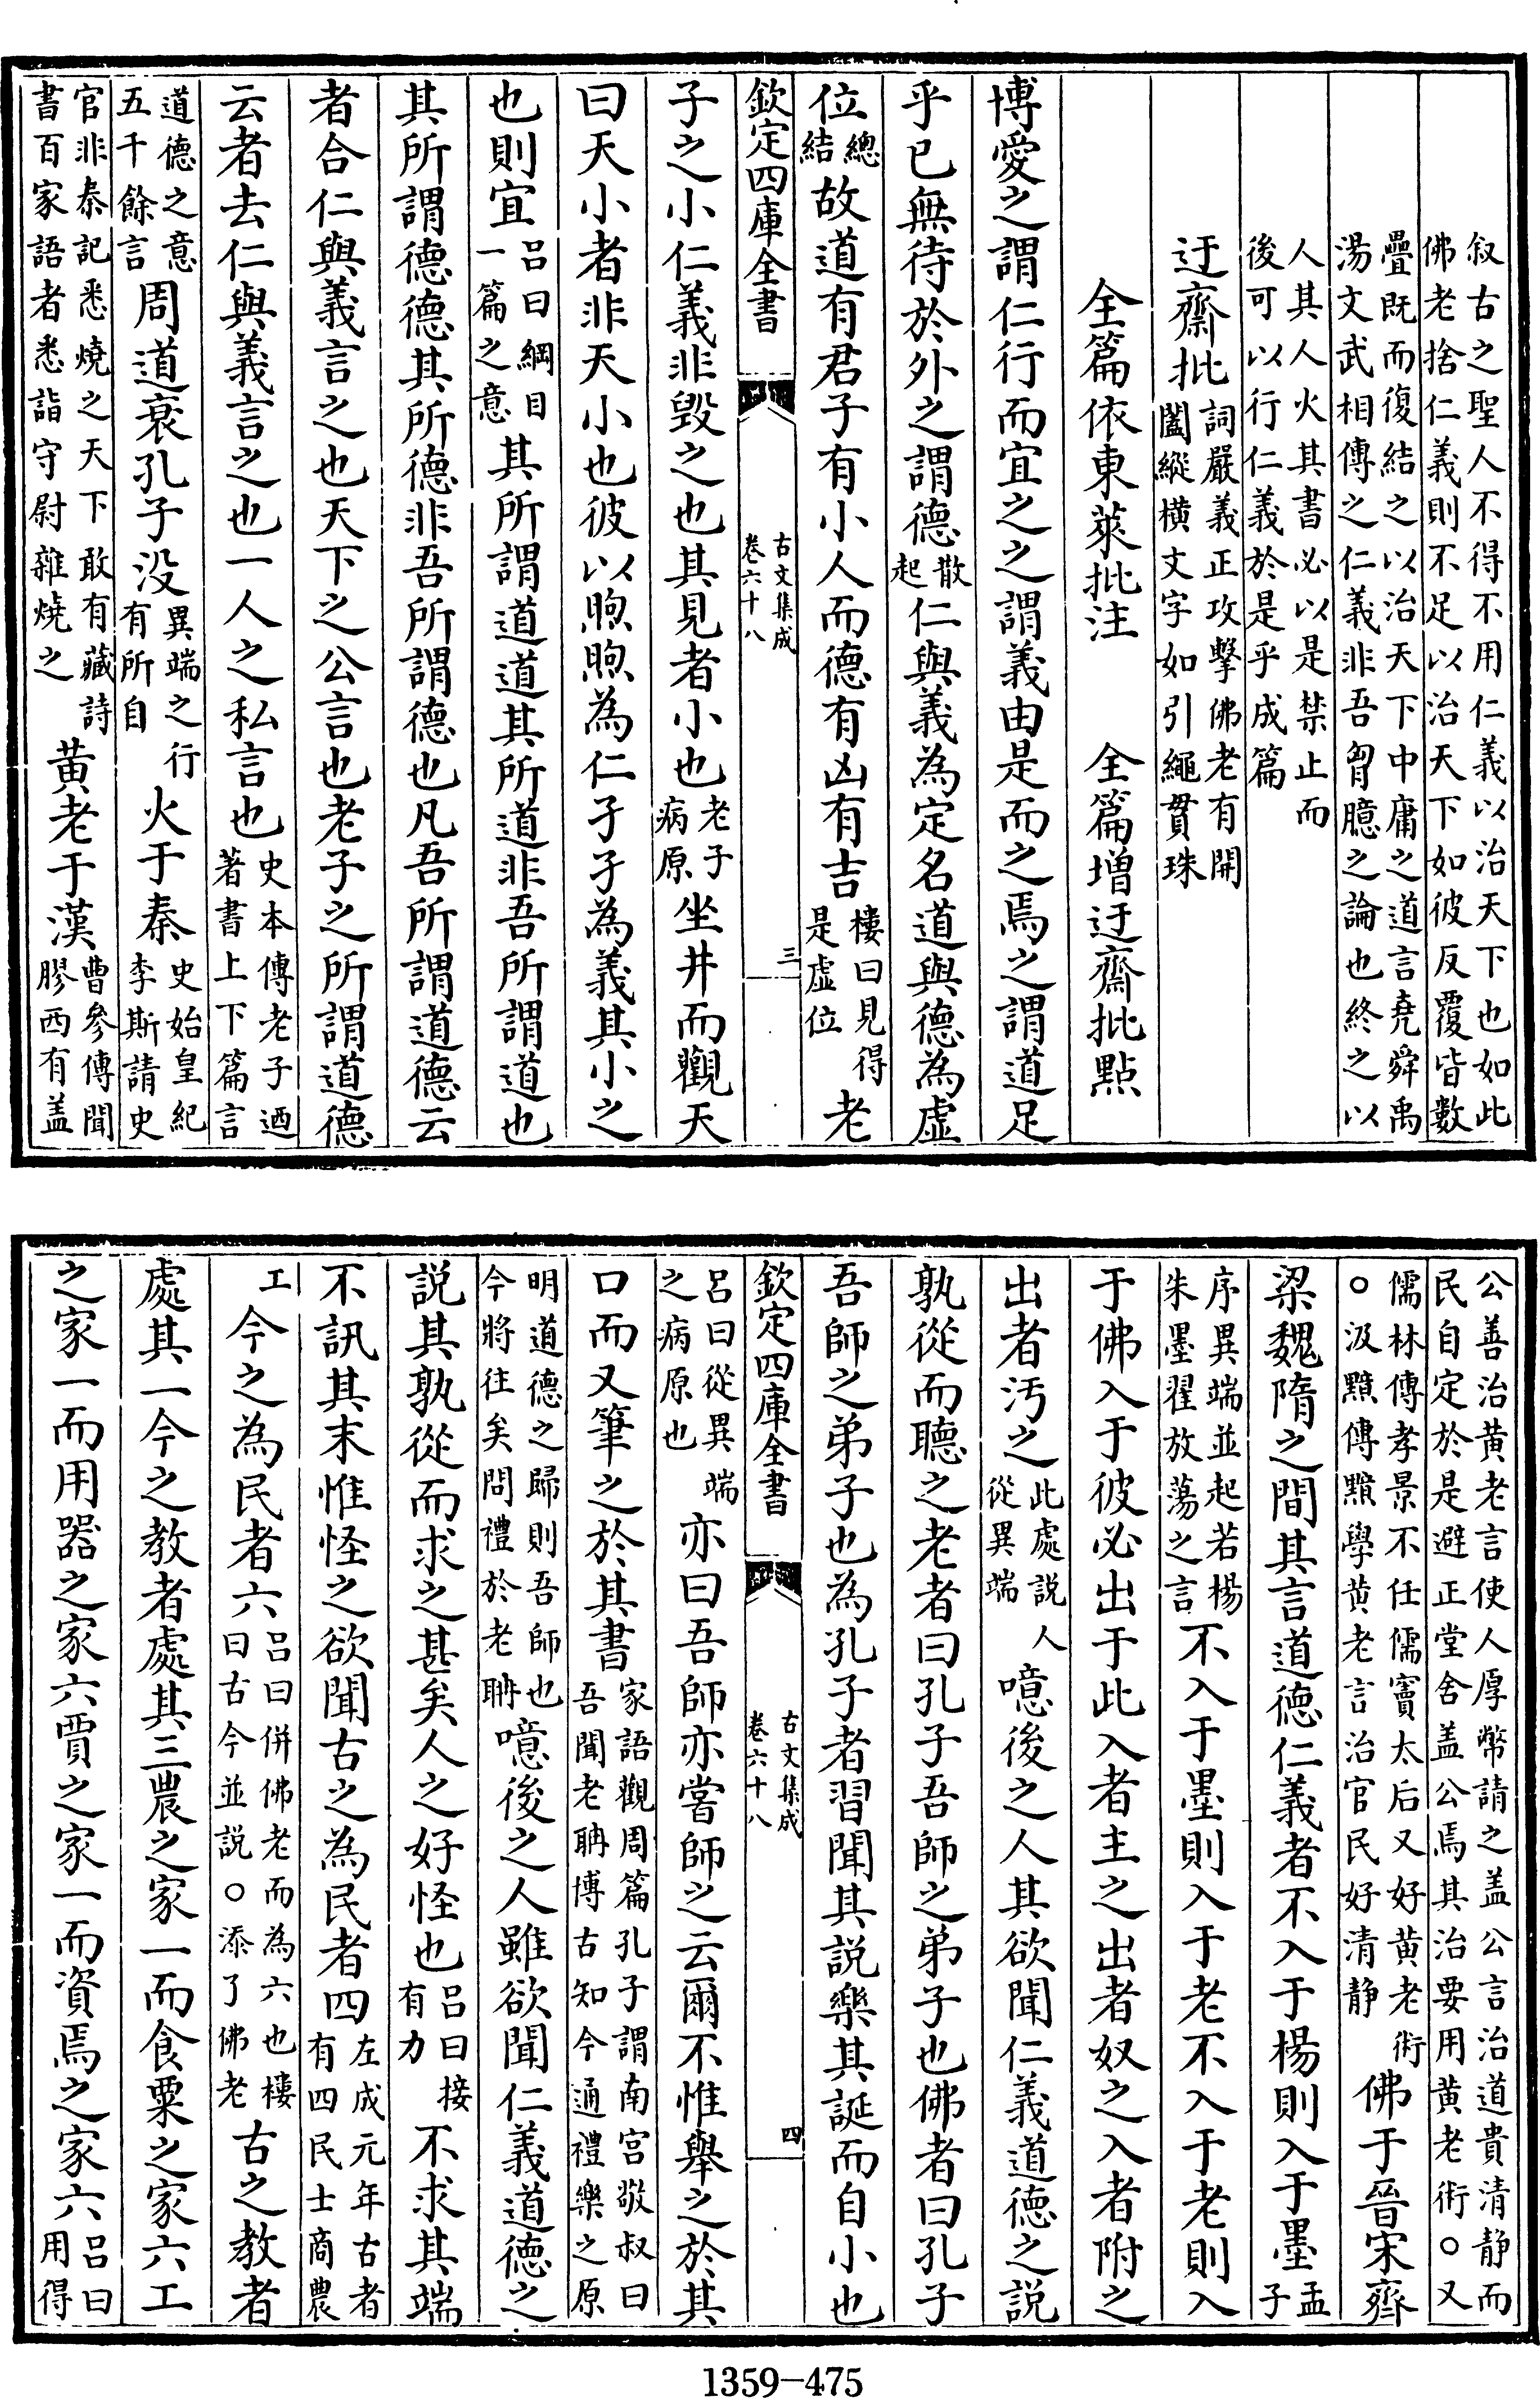 叙古之聖人不得不用仁義以治天下也如此
佛老捨仁義則不足以治天下如彼反覆皆數
疊既而復結之以治天下中庸之道言堯舜禹
湯文武相傳之仁義非吾胷臆之論也終之以
人其人火其書必以是禁止而
後可以行仁義於是乎成篇
迂齋批詞嚴義正攻擊佛老有開
闔縱横文字如引繩貫珠
全篇依東萊批注　全篇增迂齋批點
博愛之謂仁行而宜之之謂義由是而之焉之謂道足
乎已無待於外之謂德散起仁與義為定名道與德為虚
位總結故道有君子有小人而德有凶有吉樓曰見得是虚位老
欽定四庫全書　古文集成卷六十八　三
子之小仁義非毁之也其見者小也老子病原坐井而觀天
曰天小者非天小也彼以煦煦為仁孑孑為義其小之
也則宜吕曰綱目一篇之意其所謂道道其所道非吾所謂道也
其所謂德德其所德非吾所謂德也凡吾所謂道德云
者合仁與義言之也天下之公言也老子之所謂道德
云者去仁與義言之也一人之私言也史本傳老子迺著書上下篇言
道德之意五千餘言周道衰孔子没異端之行有所自火于秦史始皇紀李斯請史
官非秦記悉燒之天下敢有藏詩書百家語者悉詣守尉雜燒之黄老于漢曹參傳聞膠西有盖
公善治黄老言使人厚幣請之盖公言治道貴清静而
民自定於是避正堂舍盖公焉其治要用黄老術○又
儒林傳孝景不任儒竇太后又好黄老術○汲黯傳黯學黄老言治官民好清静佛于晉宋齊
梁魏隋之間其言道德仁義者不入于楊則入于墨孟子
序異端並起若楊朱墨翟放蕩之言不入于墨則入于老不入于老則入
于佛入于彼必出于此入者主之出者奴之入者附之
出者汚之此處説從異端人噫後之人其欲聞仁義道德之説
孰從而聽之老者曰孔子吾師之弟子也佛者曰孔子
吾師之弟子也為孔子者習聞其説樂其誕而自小也
欽定四庫全書　古文集成卷六十八　四
吕曰從異端之病原也亦曰吾師亦嘗師之云爾不惟舉之於其
口而又筆之於其書家語觀周篇孔子謂南宫敬叔曰吾聞老聃博古知今通禮樂之原
明道德之歸則吾師也今將往矣問禮於老聃噫後之人雖欲聞仁義道德之
説其孰從而求之甚矣人之好怪也吕曰接有力不求其端
不訊其末惟怪之欲聞古之為民者四左成元年古者有四民士商農
工今之為民者六吕曰併佛老而為六也樓曰古今並説○添了佛老古之教者
處其一今之教者處其三農之家一而食粟之家六工
之家一而用器之家六賈之家一而資焉之家六吕曰用得
1359-475